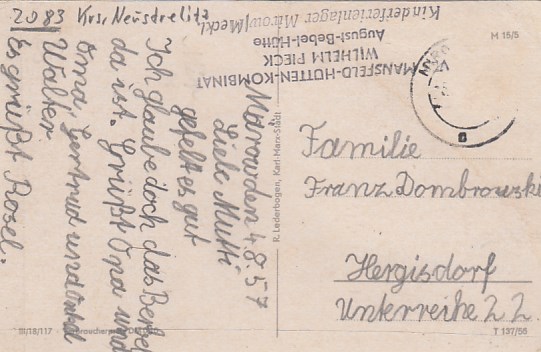 2083 Krs. Neustrelitz
VEB MANSFELD-HÜTTEN-KOMBINAT
WILHELM PIECK
August-Bebel-Hütte
Kinderferienlager Mirow/Meckl.
M 15/5
Mirow den 4.8.57
Liebe Mutti
gefelt es gut
Ich glaube doch das Berbel
da ist. Grüßt Opa und
Oma, Gertrud und onkel
Walter.
Es grüßt Rosel.
R. Lederbogen, Karl-Marx-Stadt
Familie
Franz Dombrowski
Hergisdorf
Unterreihe 22.
III/18/117
T 137/56